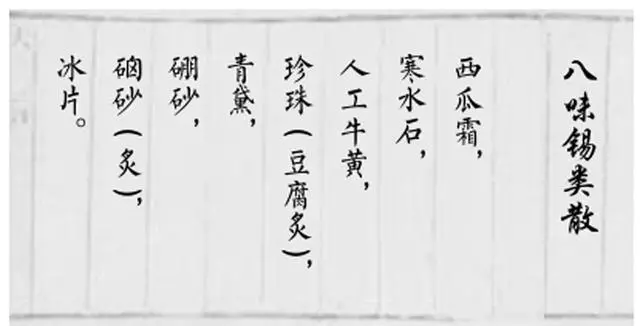 八味锡类散
西瓜霜，
寒水石，
人工牛黄，
珍珠（豆腐炙），
青黛，
硼砂，
硇砂（炙），
冰片。